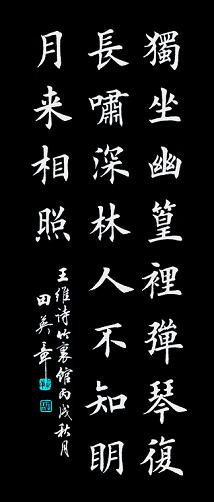 獨坐幽篁裡彈琴復
長嘯深林人不知明
月来相照
王維诗竹裏館丙戌秋月
田英章